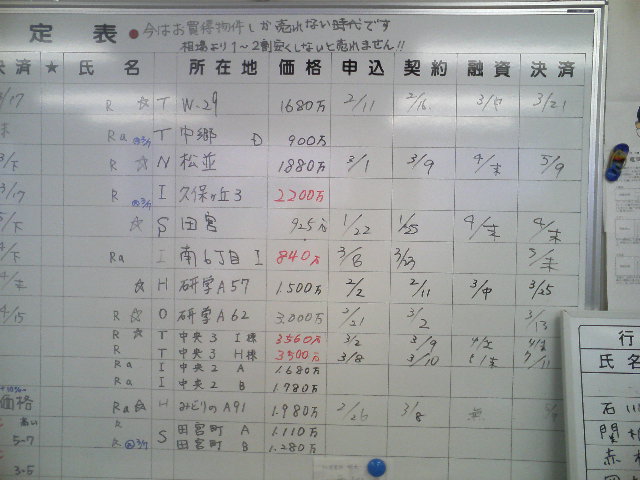 定 表 ● 今はお買得物件しか売れない時代です
相場より1~2割安くしないと売れません!!
決済 ★ 氏 名 所在地 価格 申込 契約 融資 決済
R ☆ T W-29 1680万 2/11 2/16 3/中 3/21
末 Ra T 中郷 D 900万
3/下 R ☆ N 松並 1880万 3/1 3/9 4/末 5/9
3/17 R I 久保ヶ丘3 2200万
5/下 ☆ S 田宮 925万 1/22 1/25 4/末 4/末
4/下 Ra I 南6丁目 I 840万 3/8 5/末
4/末 ☆ H 研学A57 1.500万 2/2 2/11 3/中 3/25
4/15 R ☆ O 研学A62 3,000万 2/21 3/2 3/13
R ☆ T 中央3 I棟 3560万 3/2 3/9
R T 中央3 H棟 3500万 3/8 3/10
Ra I 中央2 A 1.680万
Ra I 中央2 B 1.780万
価格 Ra ☆ H みどりのA91 1.980万 2/26 3/8
高い R S 田宮町 A 1.110万
5-7 R 田宮町 B 1.280万
3-5
行
氏名
石川
関
赤